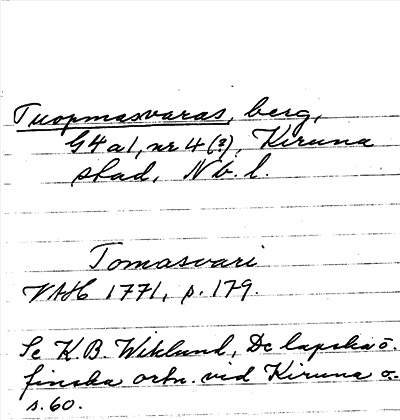 Tuopmasvaras, berg,
G4a1, nr 4 (?), Kiruna
stad, Nb. l.
Tomasvari
VAH 1771, p. 179.
Se K.B. Wiklund, De lapska o.
finska ortn. vid Kiruna o.
s. 60.